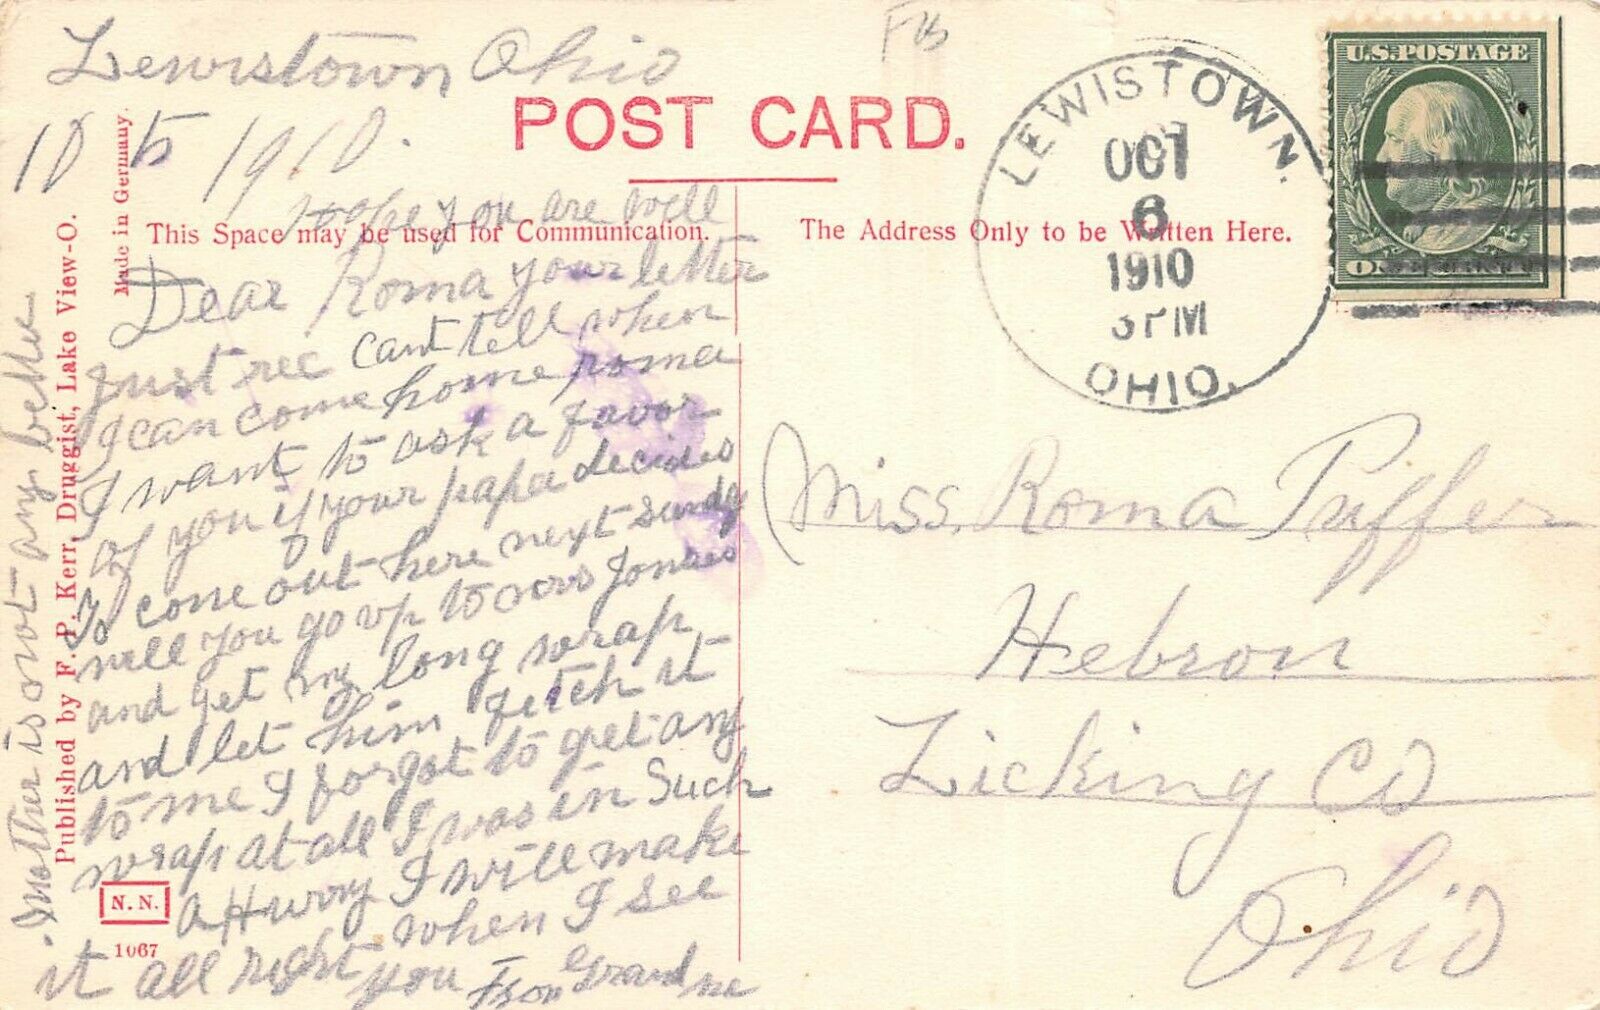 Lewistown Ohio
10 5 1910.
hope you are well
Dear Roma your letter
just rec cant tell when
I can come home roma
I want to ask a favor
of you if your papa decides
to come out here next sundy
will you go up to Jonses
and get my long wrap
and let him fetch it
to me I forgot to get any
wrap at all I was in Such
a Hurry I will make
it all right when I see
you From Grand
Mother is not any better
Published by F. P. Kerr, Druggist, Lake View-O.
Made in Germany.
N. N.
1067
POST CARD.
This Space may be used for Communication.
The Address Only to be Written Here.
LEWISTOWN.
OCT
6
1910
3 PM
OHIO.
U.S. POSTAGE
Miss. Roma Puffer
Hebron
Licking Co
Ohio